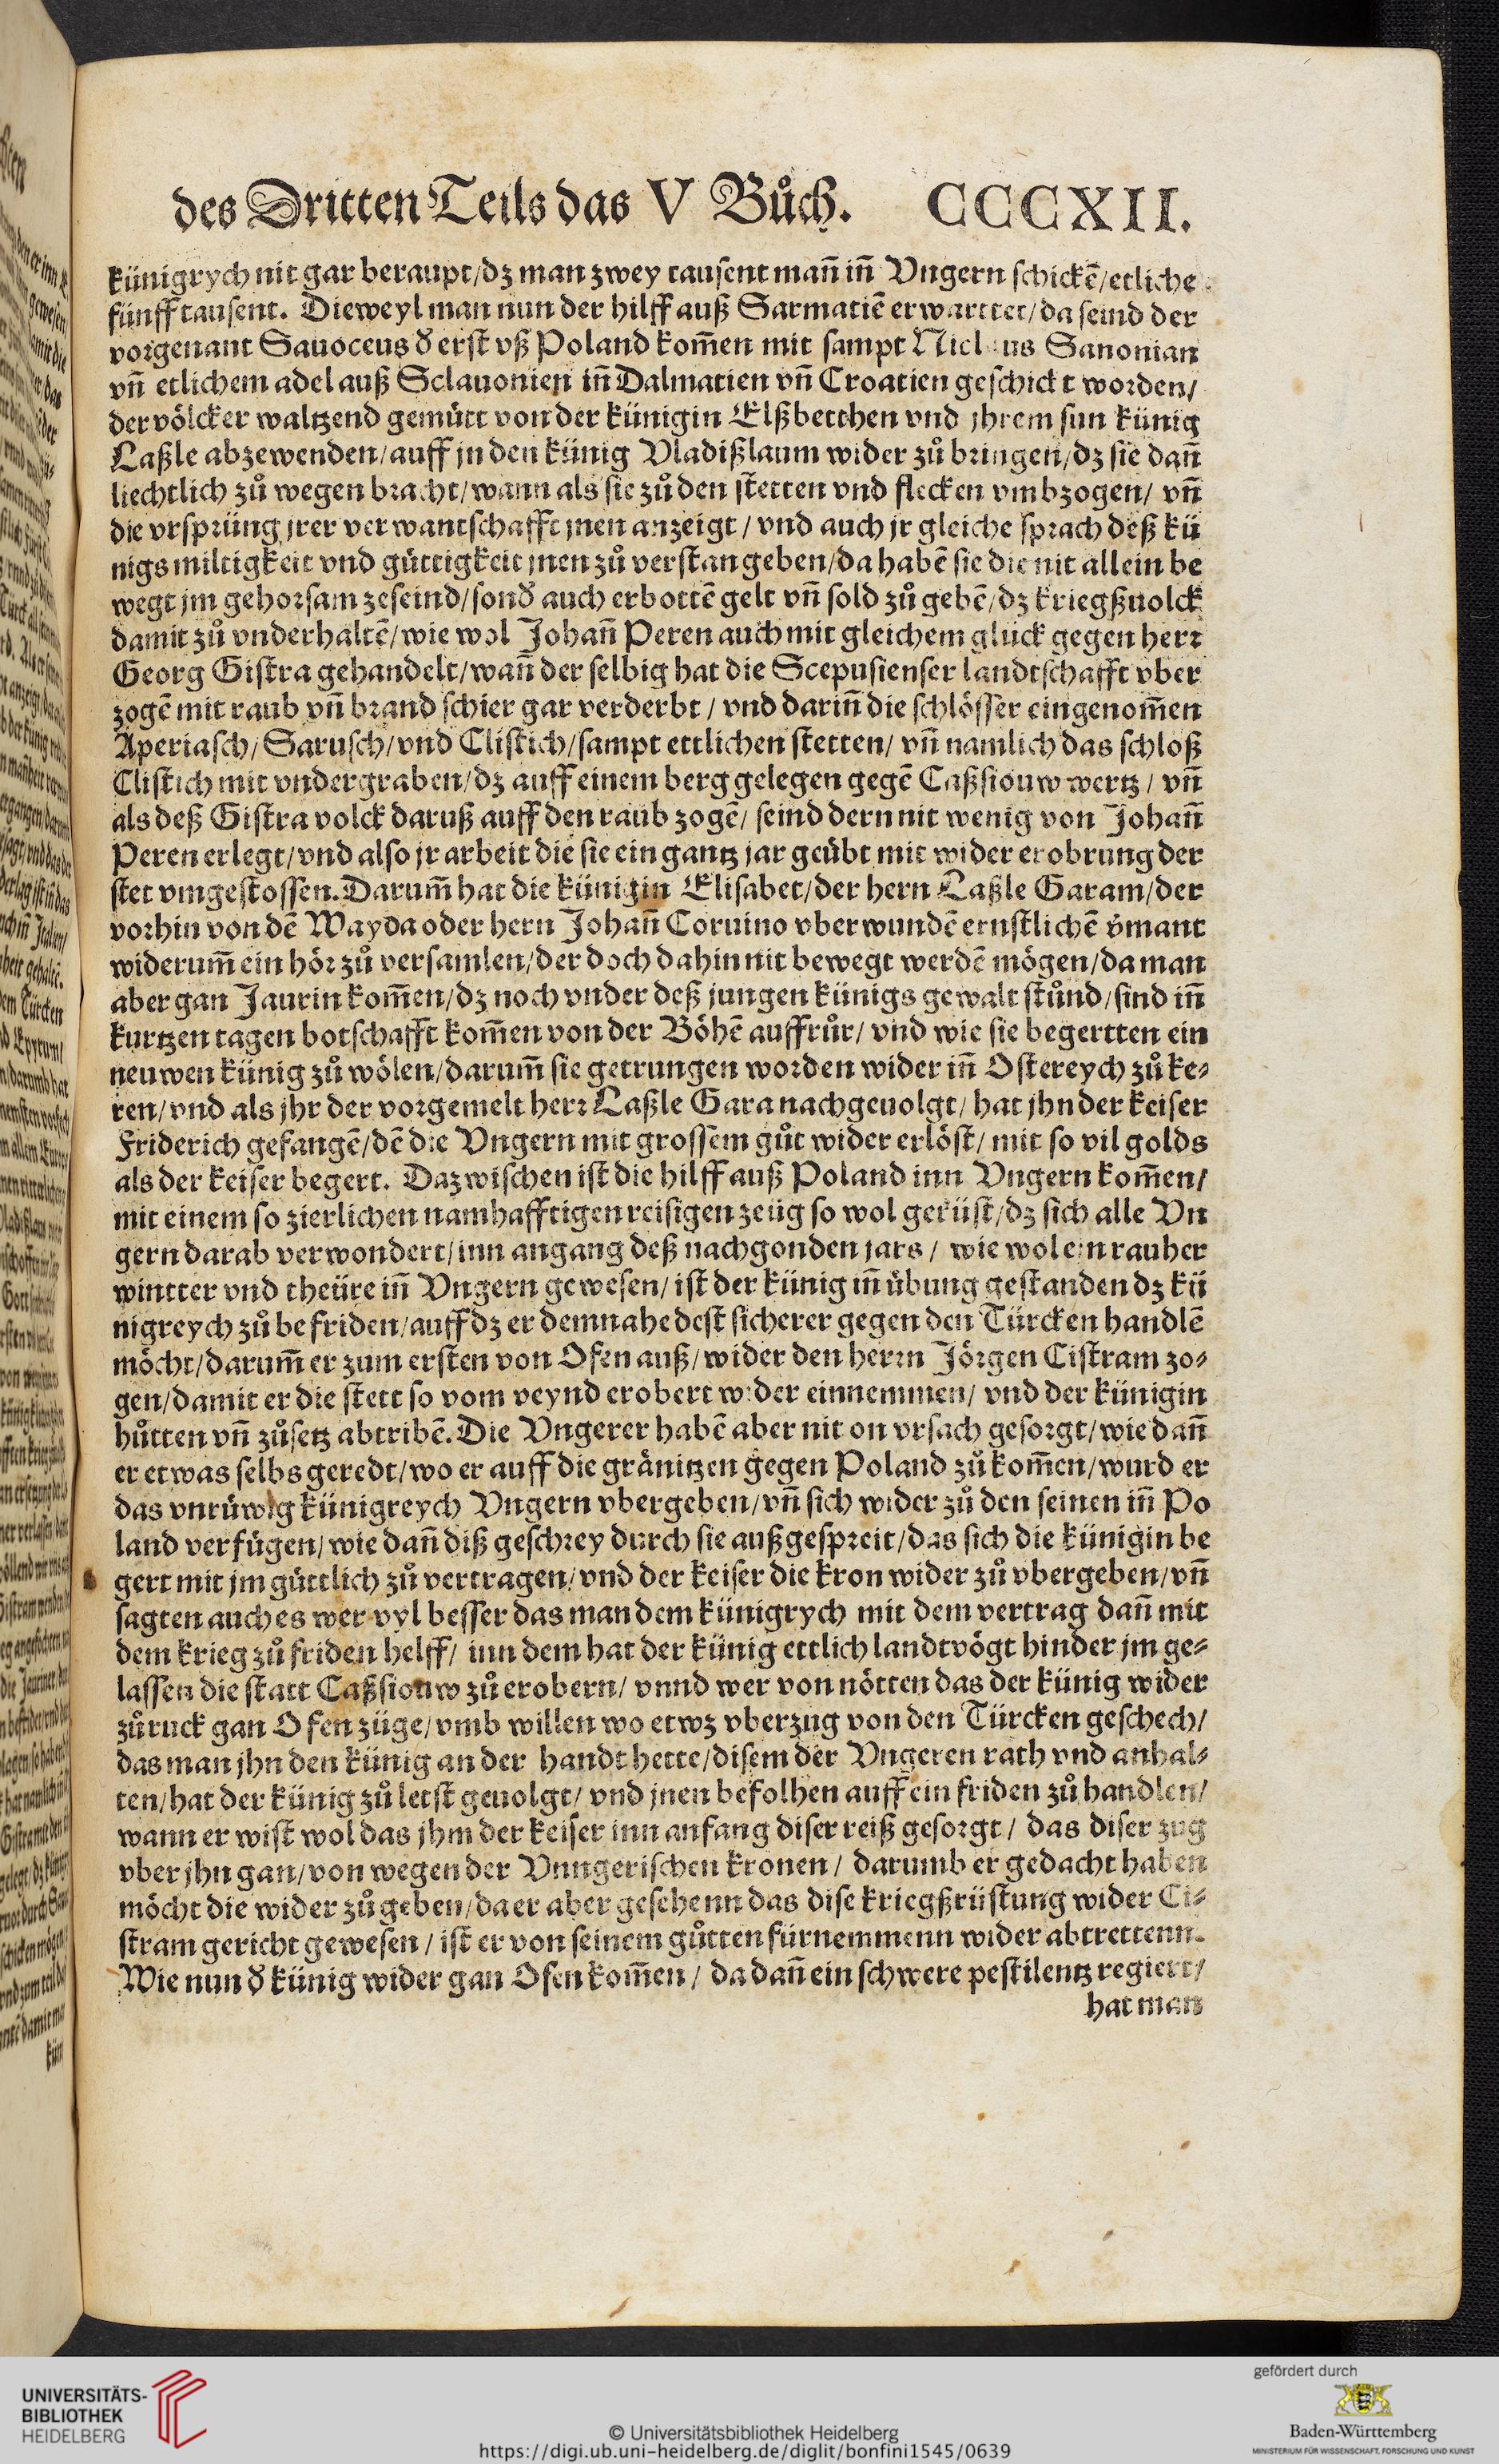 des Dritten Teils das V Bůch. CCCXII.
künigrych nit gar beraupt/dz man zwey tausent mañ iñ Vngern schickē/etliche
fünff tausent. Dieweyl man nun der hilff auß Sarmatiē erwarttet/da seind der
vorgenant Sauoceus ð erst vß Poland kom̃en mit sampt Sanonian
vñ etlichem adel auß Sclauonien iñ Dalmatien vñ Croatien geschickt worden/
der völcker waltzend gemütt von der künigin Elßbetthen vnd jhrem sun künig
Laßle abzewenden/auff jn den künig Vladißlaum wider zů bringen/dz sie dañ
liechtlich zů wegen bracht/wann als sie zů den stetten vnd flecken vmbzogen/ vñ
die vrsprüng jrer verwantschafft jnen anzeigt/ vnd auch jr gleiche sprach deß kü
nigs miltigkeit vnd güttigkeit jnen zů verstan geben/da habē sie die nit allein be
wegt jm gehorsam zeseind/sonð auch erbottē gelt vñ sold zů gebē/dz kriegßuolck
damit zů vnderhaltē/wie wol Johañ Peren auch mit gleichem glück gegen herr
Georg Gistra gehandelt/wañ der selbig hat die Scepusienser landtschafft vber
zogē mit raub vñ brand schier gar verderbt/ vnd dariñ die schlösser eingenom̃en
Aperiasch/Sarusch/vnd Clistich/sampt ettlichen stetten/ vñ namlich das schloß
Clistich mit vndergraben/dz auff einem berg gelegen gegē Caßsiouw wertz/ vñ
als deß Gistra volck daruß auff den raub zogē/ seind dern nit wenig von Johañ
Peren erlegt/vnd also jr arbeit die sie ein gantz jar geübt mit wider erobrung der
stet vmgestossen. Darum̃ hat die künigin Elisabet/der hern Laßle Garam/der
vorhin von dē Wayda oder hern Johañ Coruino vberwundē ernstlichē v̊mant
widerum̃ ein hör zů versamlen/der doch dahin nit bewegt werdē mögen/da man
aber gan Jaurin kom̃en/dz noch vnder deß jungen künigs gewalt stůnd/sind iñ
kurtzen tagen botschafft kom̃en von der Böhē auffrůr/ vnd wie sie begertten ein
neuwen künig zů wölen/darum̃ sie getrungen worden wider iñ Ostereych zů ke⸗
ren/vnd als jhr der vorgemelt herr Laßle Gara nachgeuolgt/ hat jhn der keiser
Friderich gefangē/dē die Vngern mit grossem gůt wider erlöst/ mit so vil golds
als der keiser begert. Dazwischen ist die hilff auß Poland inn Vngern kom̃en/
mit einem so zierlichen namhafftigen reisigen zeüg so wol gerüst/dz sich alle Vn
gern darab verwondert/inn angang deß nachgonden jars/ wie wol ein rauher
wintter vnd theüre iñ Vngern gewesen/ ist der künig iñ übung gestanden dz kü
nigreych zů befriden/auff dz er demnahe dest sicherer gegen den Türcken handlē
möcht/darum̃ er zum ersten von Ofen auß/wider den herrn Jörgen Cistram zo⸗
gen/damit er die stett so vom veynd erobert wider einnemmen/ vnd der künigin
hůtten vñ zůsetz abtribē. Die Vngerer habē aber nit on vrsach gesorgt/wie dañ
er etwas selbs geredt/wo er auff die gränitzen gegen Poland zů kom̃en/wurd er
das vnrüwig künigreych Vngern vbergeben/vñ sich wider zů den seinen iñ Po
land verfügen/wie dañ diß geschrey durch sie außgespreit/das sich die künigin be
gert mit jm güttlich zů vertragen/vnd der keiser die kron wider zů vbergeben/vñ
sagten auch es wer vyl besser das man dem künigrych mit dem vertrag dañ mit
dem krieg zů friden helff/ inn dem hat der künig ettlich landtvögt hinder jm ge⸗
lassen die statt Caßsiouw zů erobern/ vnnd wer von nötten das der künig wider
zů ruck gan Ofen züge/vmb willen wo etwz vberzug von den Türcken geschech/
das man jhn den künig an der handt hette/disem der Vngeren rath vnd anhal⸗
ten/hat der künig zů letst geuolgt/ vnd jnen befolhen auff ein friden zů handlen/
wann er wist wol das jhm der keiser inn anfang diser reiß gesorgt/ das diser zug
vber jhn gan/von wegen der Vnngerischen kronen/ darumb er gedacht haben
möcht die wider zů geben/da er aber gesehenn das dise kriegßrüstung wider Ci⸗
stram gericht gewesen/ ist er von seinem gůtten fürnemmenn wider abtrettenn.
Wie nun ð künig wider gan Ofen kom̃en/ da dañ ein schwere pestilentz regiert/
hat man
UNIVERSITÄTS-
BIBLIOTHEK
HEIDELBERG
© Universitätsbibliothek Heidelberg
https://digi.ub.uni-heidelberg.de/diglit/bonfini1545/0639
gefördert durch
Baden-Württemberg
MINISTERIUM FÜR WISSENSCHAFT, FORSCHUNG UND KUNST